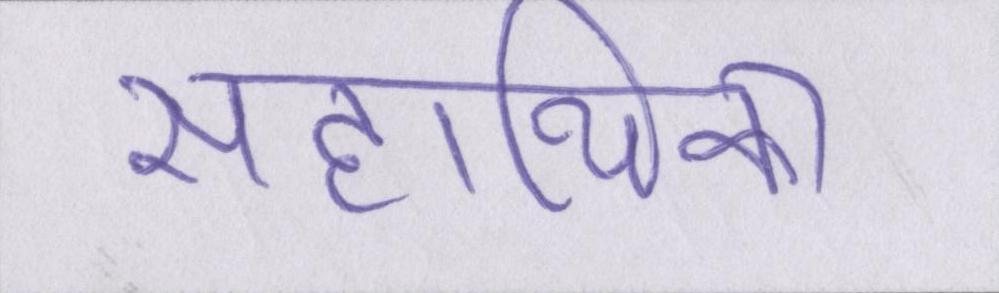 सहायिका